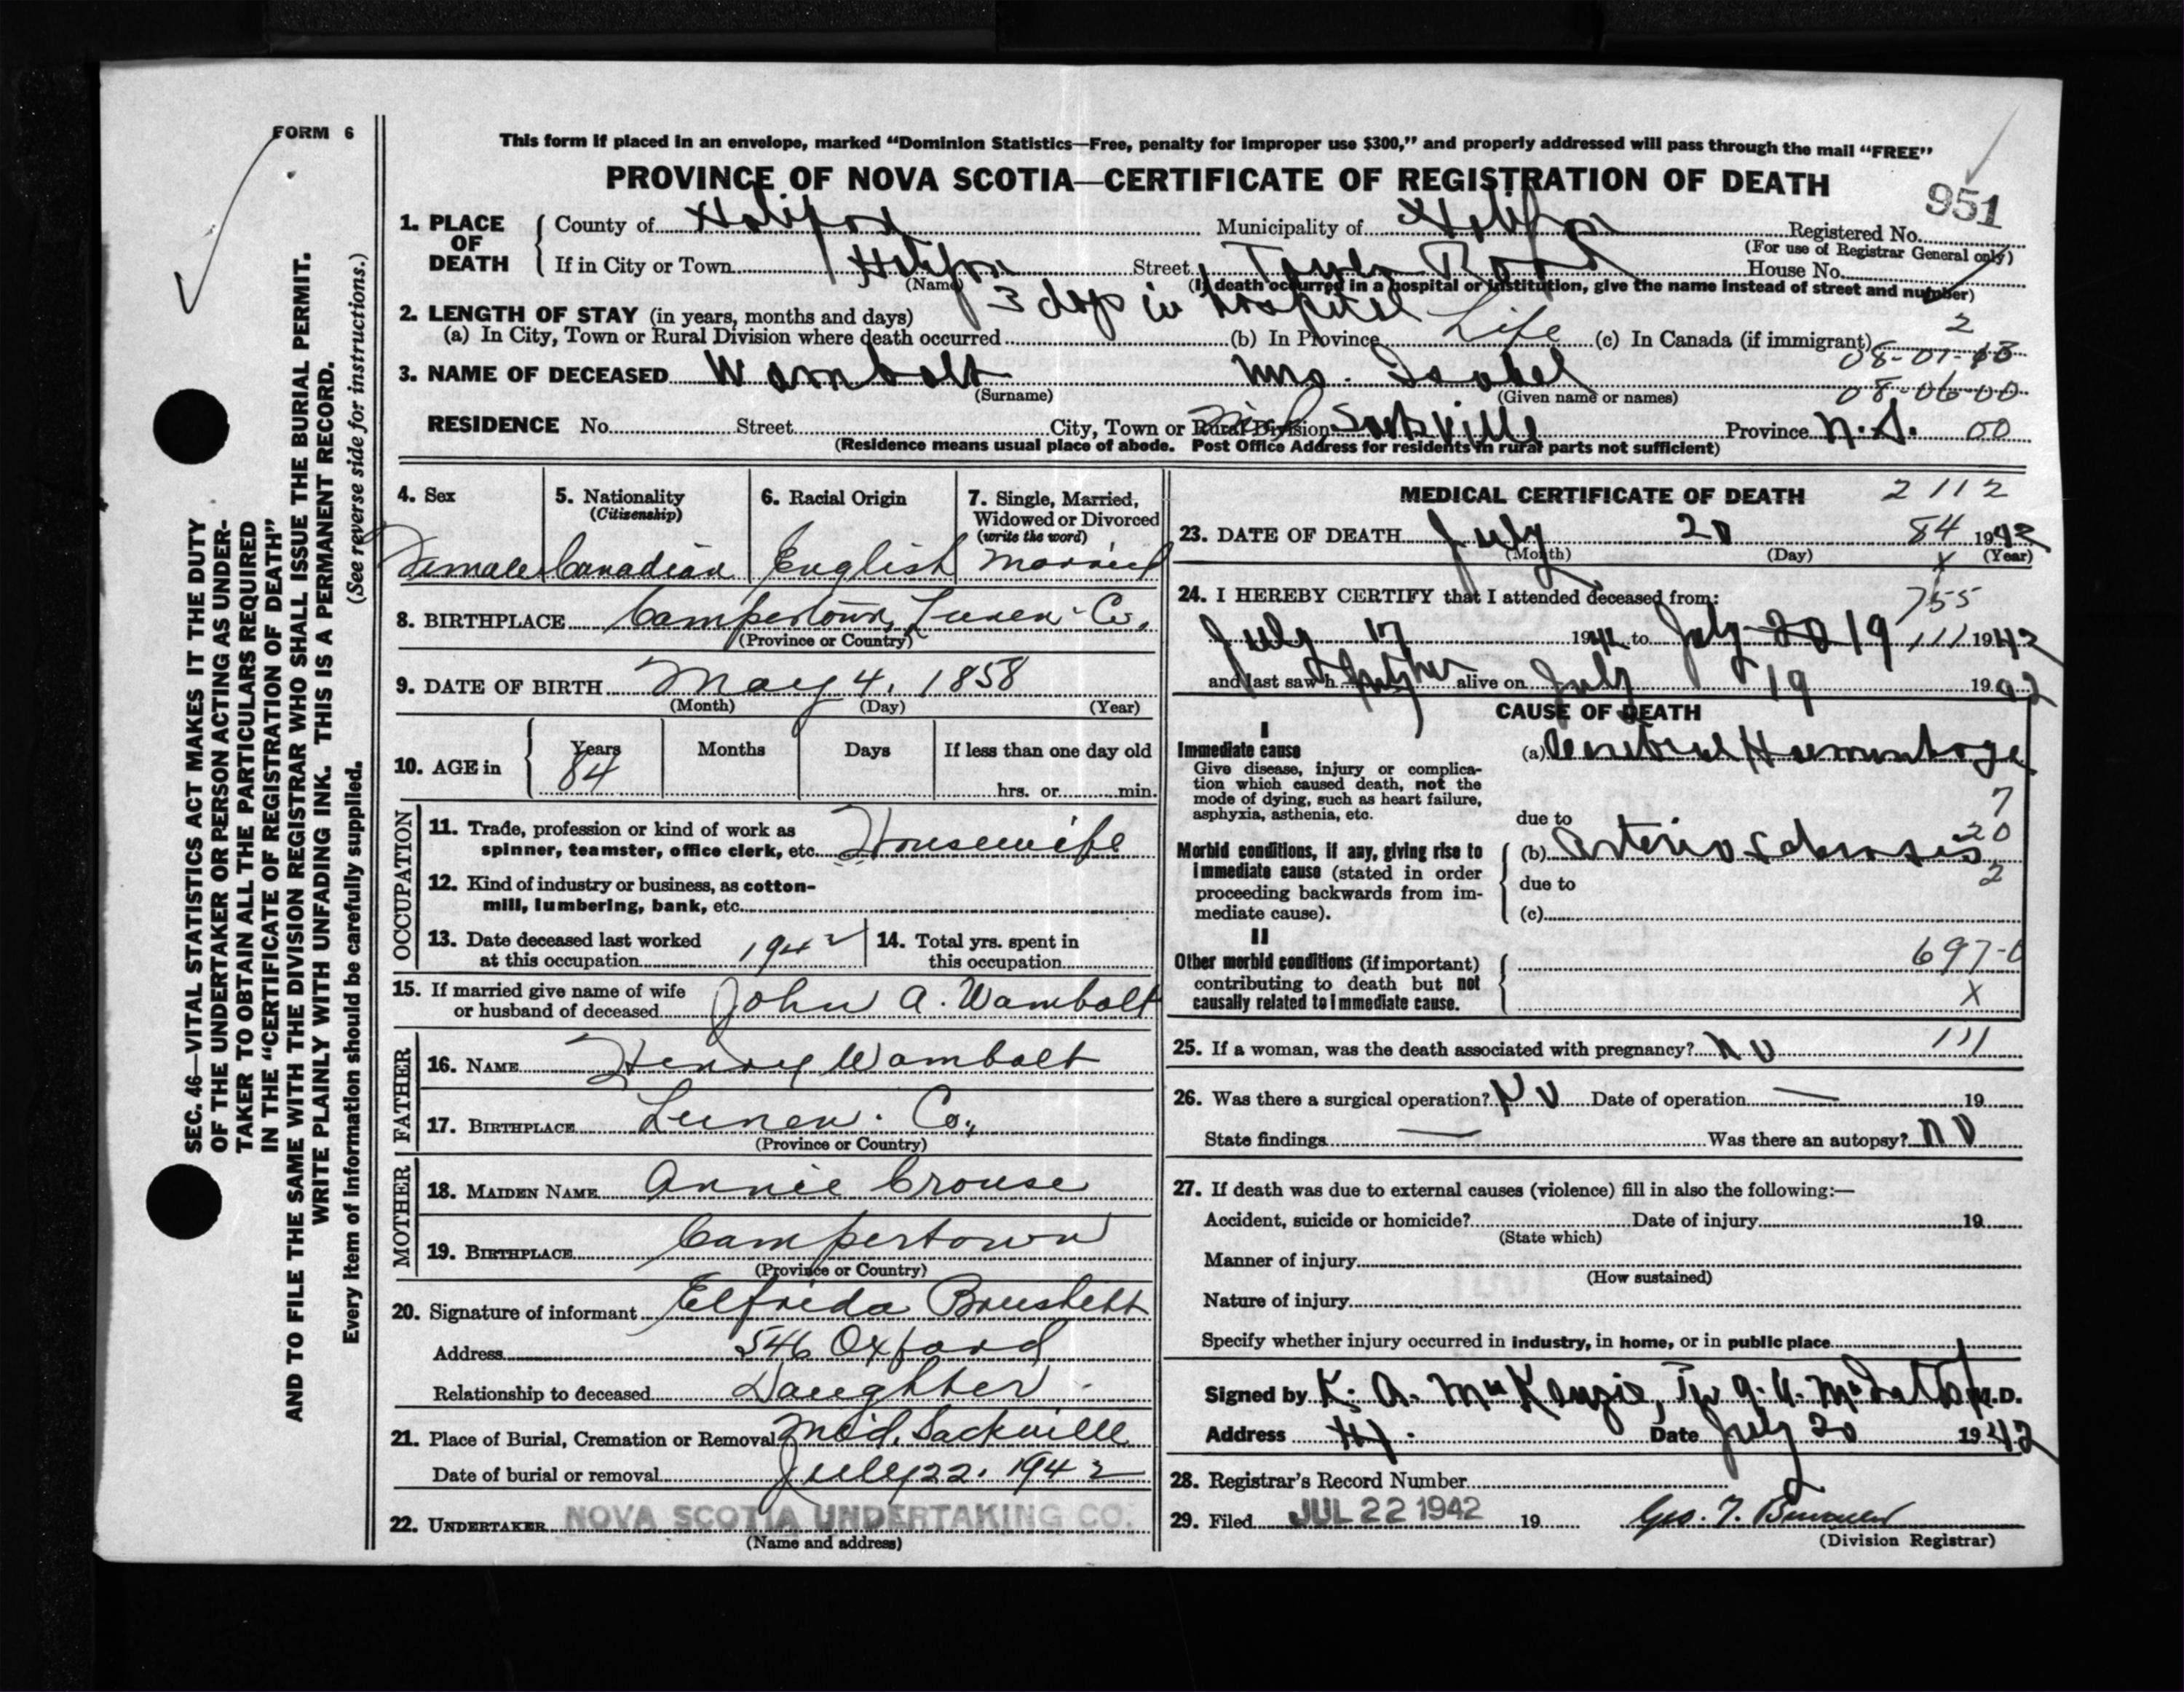 FORM 6
This form if placed in an envelope, marked “Dominion Statistics—Free, penalty for improper use $300,” and properly addressed will pass through the mail “FREE”
PROVINCE OF NOVA SCOTIA—CERTIFICATE OF REGISTRATION OF DEATH
951
1. PLACE OF DEATH
County of Halifax Municipality of Halifax Registered No.
(For use of Registrar General only)
If in City or Town Halifax Street Tower Road House No.
(Name) (If death occurred in a hospital or institution, give the name instead of street and number)
3 days in hospital
2. LENGTH OF STAY (in years, months and days)
2
(a) In City, Town or Rural Division where death occurred (b) In Province Life (c) In Canada (if immigrant)
08-01-13
3. NAME OF DECEASED Wambolt Mrs. Isabel
(Surname) (Given name or names) 08-06-00
RESIDENCE No. Street City, Town or Rural Division Sackville Province N.S. 00
(Residence means usual place of abode. Post Office Address for residents in rural parts not sufficient)
4. Sex
Female
5. Nationality
(Citizenship)
Canadian
6. Racial Origin
English
7. Single, Married,
Widowed or Divorced
(write the word)
Married
8. BIRTHPLACE Campertown, Lunen. Co.
(Province or Country)
9. DATE OF BIRTH May 4, 1858
(Month) (Day) (Year)
10. AGE in Years Months Days If less than one day old
84 hrs. or min.
OCCUPATION
11. Trade, profession or kind of work as
spinner, teamster, office clerk, etc. Housewife
12. Kind of industry or business, as cotton-
mill, lumbering, bank, etc.
13. Date deceased last worked
at this occupation 1942
14. Total yrs. spent in
this occupation
15. If married give name of wife
or husband of deceased John A. Wambolt
FATHER
16. NAME Henry Wambolt
17. BIRTHPLACE Lunen. Co.,
(Province or Country)
MOTHER
18. MAIDEN NAME Annie Crouse
19. BIRTHPLACE Campertown
(Province or Country)
20. Signature of informant Elfreida
Address 546 Oxford
Relationship to deceased Daughter
21. Place of Burial, Cremation or Removal Mid. Sackville
Date of burial or removal July 22, 1942
22. UNDERTAKER NOVA SCOTIA UNDERTAKING CO.
(Name and address)
MEDICAL CERTIFICATE OF DEATH 2112
23. DATE OF DEATH July 20 84 1942
(Month) (Day) X (Year)
24. I HEREBY CERTIFY that I attended deceased from:
755
July 17 1942 to July 20 19 111 1942
and last saw h her alive on July 19 1942
CAUSE OF DEATH
I
Immediate cause
Give disease, injury or complica-
tion which caused death, not the
mode of dying, such as heart failure,
asphyxia, asthenia, etc.
(a) Cerebral Haemorrhage
7
due to
20
Morbid conditions, if any, giving rise to
immediate cause (stated in order
proceeding backwards from im-
mediate cause).
(b) Arterio sclerosis
due to 2
(c)
II
Other morbid conditions (if important)
contributing to death but not
causally related to immediate cause.
697-0
X
25. If a woman, was the death associated with pregnancy? No 111
26. Was there a surgical operation? No Date of operation — 19
State findings — Was there an autopsy? No
27. If death was due to external causes (violence) fill in also the following:—
Accident, suicide or homicide? Date of injury 19
(State which)
Manner of injury
(How sustained)
Nature of injury
Specify whether injury occurred in industry, in home, or in public place
Signed by K. A. McKenzie, M.D.
Address Hx. Date July 20 1942
28. Registrar's Record Number
29. Filed JUL 22 1942 19
(Division Registrar)
SEC. 46—VITAL STATISTICS ACT MAKES IT THE DUTY
OF THE UNDERTAKER OR PERSON ACTING AS UNDER-
TAKER TO OBTAIN ALL THE PARTICULARS REQUIRED
IN THE “CERTIFICATE OF REGISTRATION OF DEATH”
AND TO FILE THE SAME WITH THE DIVISION REGISTRAR WHO SHALL ISSUE THE BURIAL PERMIT.
WRITE PLAINLY WITH UNFADING INK. THIS IS A PERMANENT RECORD.
Every item of information should be carefully supplied. (See reverse side for instructions.)